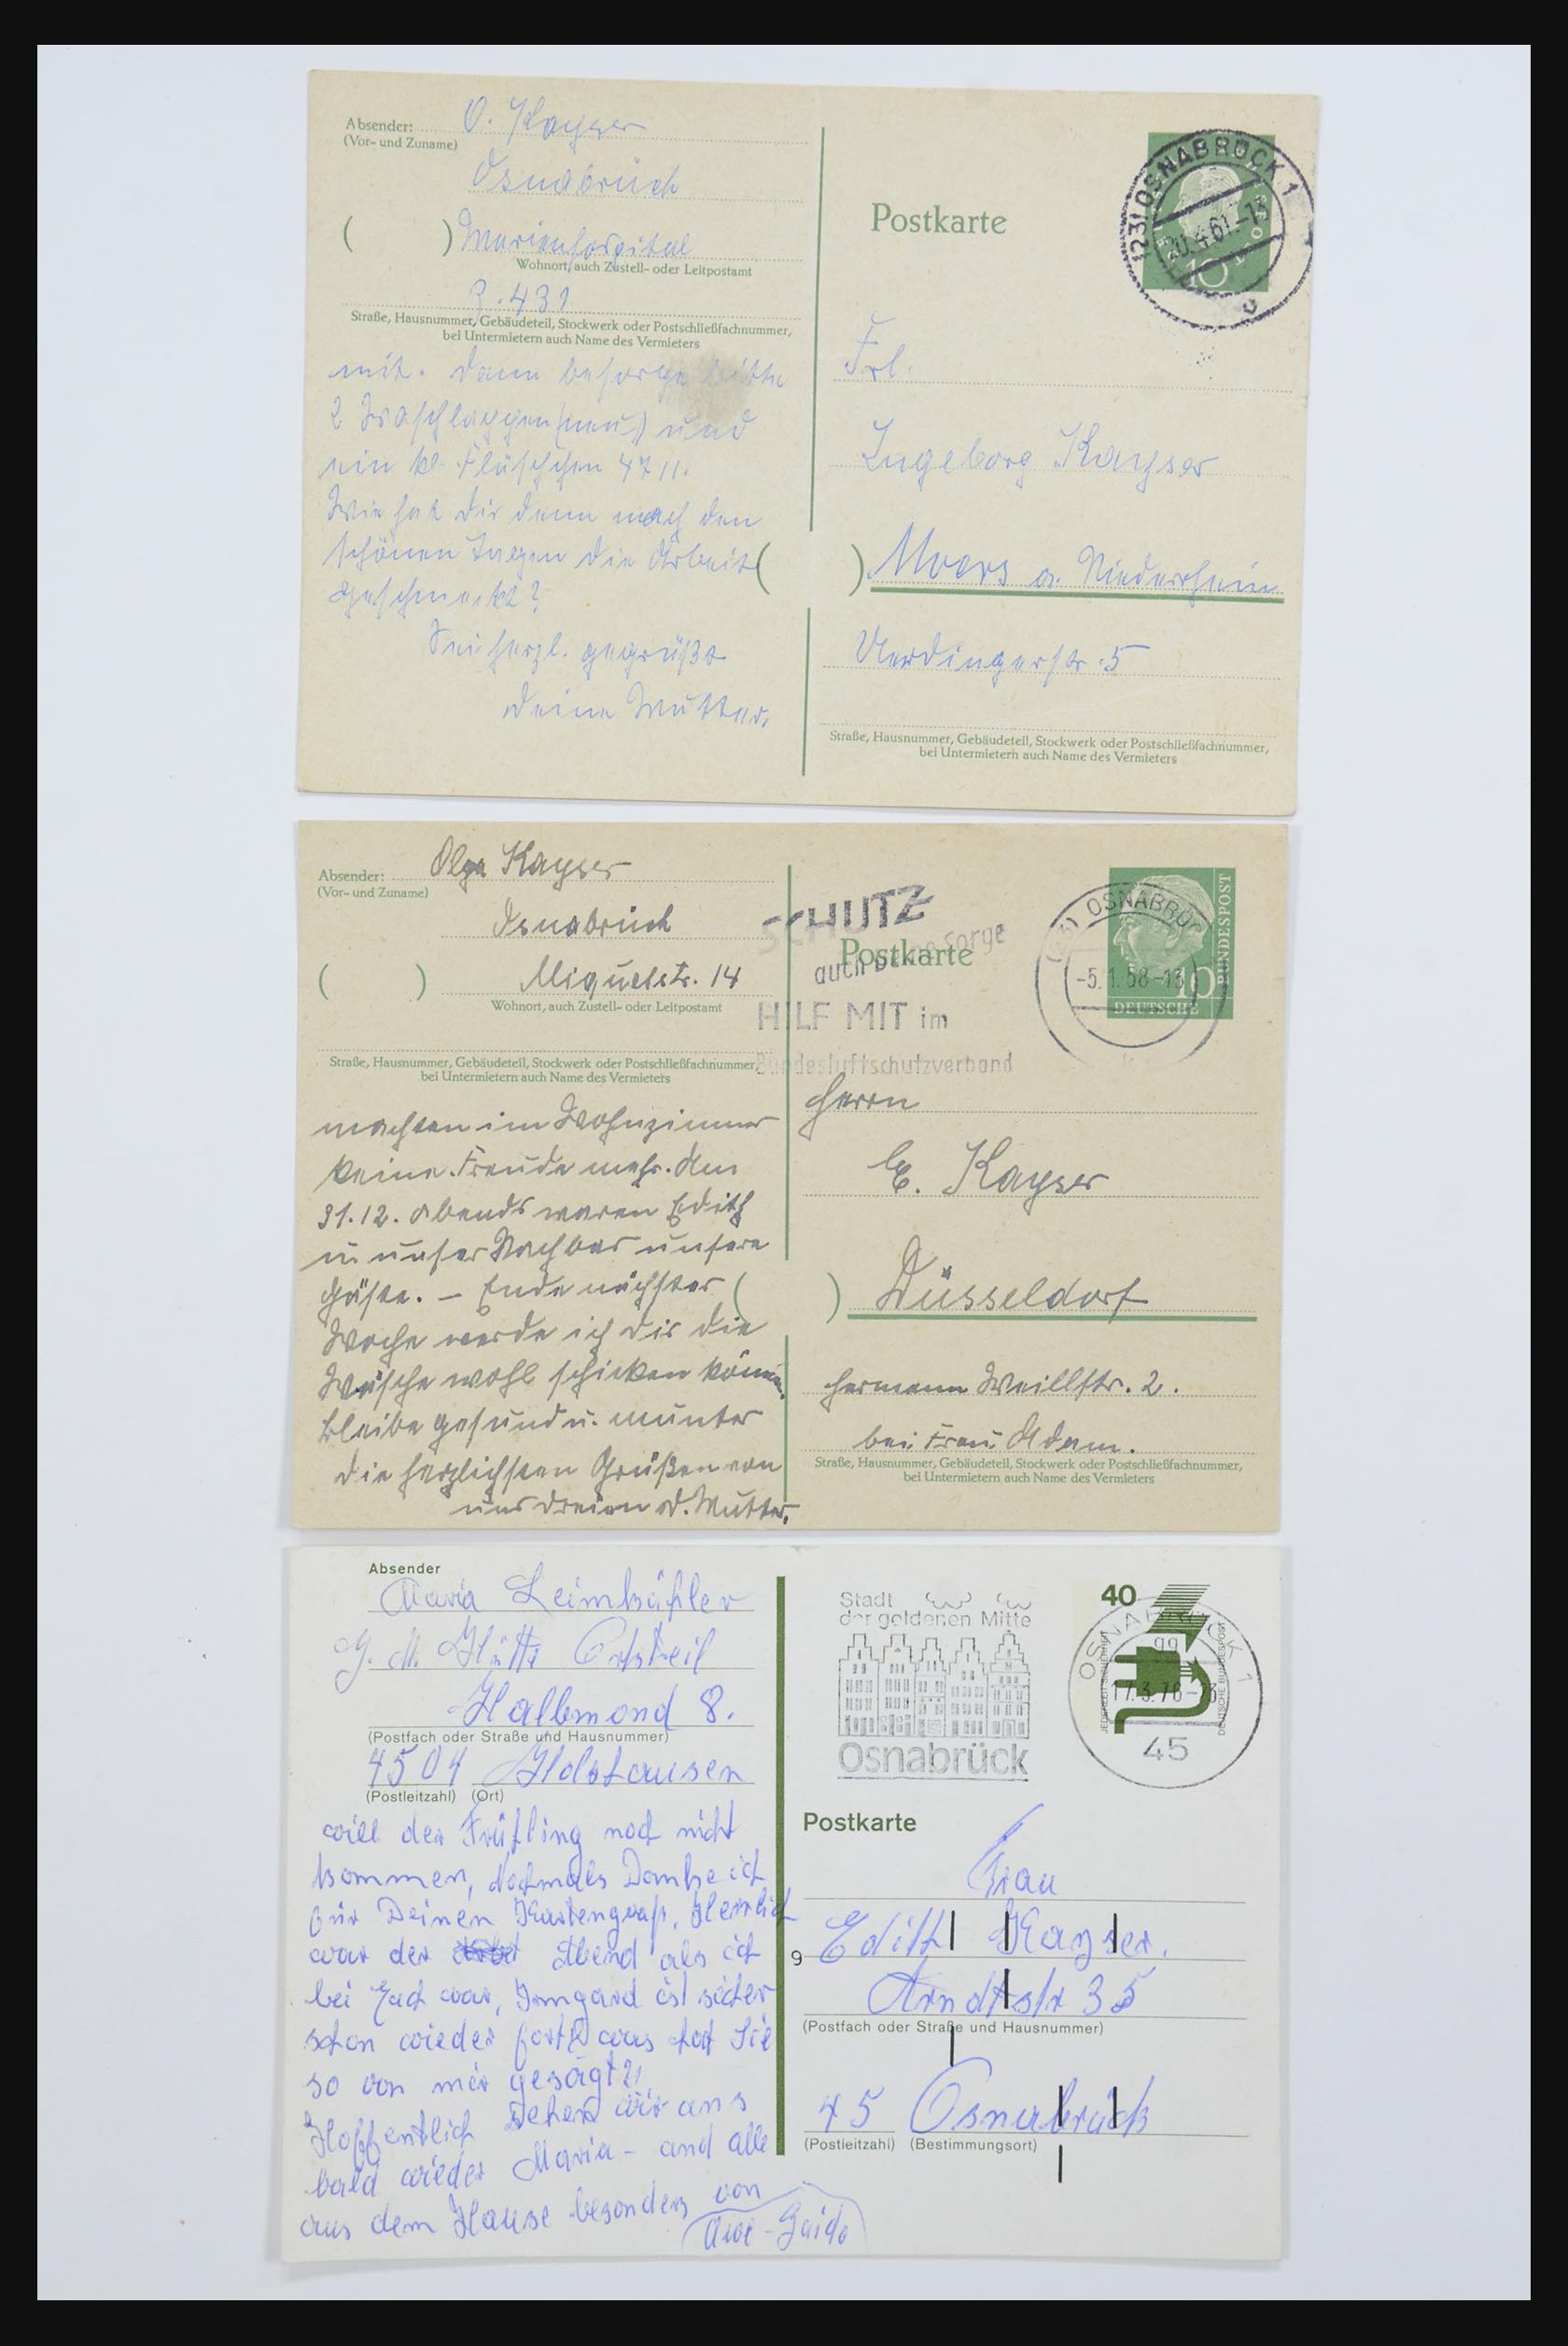 Absender: O. Kayser
(Vor- und Zuname)
Osnabrück
( ) Marienhospital
Wohnort, auch Zustell- oder Leitpostamt
Z. 431
Straße, Hausnummer, Gebäudeteil, Stockwerk oder Postschließfachnummer,
bei Untermietern auch Name des Vermieters
mit. Dann besorge bitte
2 Waschlappen (neu) und
ein kl. Fläschchen 4711.
Wie hat dir denn nach den
schönen Tagen die Arbeit
geschmeckt?
Sei herzl. gegrüßt
deine Mutter.
Postkarte
(23) OSNABRÜCK 1
30.4.61.-13
10
Frl.
Ingeborg Kayser
( ) Moers a. Niederrhein
Uerdingerstr. 5
Straße, Hausnummer, Gebäudeteil, Stockwerk oder Postschließfachnummer,
bei Untermietern auch Name des Vermieters
Absender: Olga Kayser
(Vor- und Zuname)
Osnabrück
( ) Miquelstr. 14
Wohnort, auch Zustell- oder Leitpostamt
Straße, Hausnummer, Gebäudeteil, Stockwerk oder Postschließfachnummer,
bei Untermietern auch Name des Vermieters
machten im Wohnzimmer
keine Freude mehr. Am
31.12. abends waren Edith
u unser Nachbar unsere
Gäste. – Ende nächster
Woche werde ich dir die
Wäsche wohl schicken können.
Bleibe gesund u. munter
die herzlichsten Grüßen von
uns dreien d. Mutter.
SCHUTZ
auch deine Sorge
HILF MIT im
Bundesluftschutzverband
Postkarte
OSNABRÜCK
-5.1.58-13
10
DEUTSCHE
BUNDESPOST
Herrn
E. Kayser
( ) Düsseldorf
Hermann Weillstr. 2.
bei Frau Adam.
Straße, Hausnummer, Gebäudeteil, Stockwerk oder Postschließfachnummer,
bei Untermietern auch Name des Vermieters
Absender
Maria Leimkühler
G. M. Hütte Ortsteil
Hallemond 8.
(Postfach oder Straße und Hausnummer)
4504 Holzhausen
(Postleitzahl) (Ort)
will der Frühling noch nicht
kommen, Nochmals Danke ich
für Deinen Kartengruß, Herrlich
war der Abend als ich
bei Euch war, Irmgard ist sicher
schon wieder fort? was hat Sie
so von mir gesagt?
Hoffentlich sehen wir uns
bald wieder Maria – und alle
aus dem Hause besonders von
Uwe – Guido
Stadt
der goldenen Mitte
Osnabrück
40
OSNABRÜCK 1
99
17.3.78-13
45
JEDERZEIT SICHERHEIT
DEUTSCHE BUNDESPOST
Postkarte
Frau
9 Edith Kayser.
Arndtstr 35
(Postfach oder Straße und Hausnummer)
45 Osnabrück
(Postleitzahl) (Bestimmungsort)